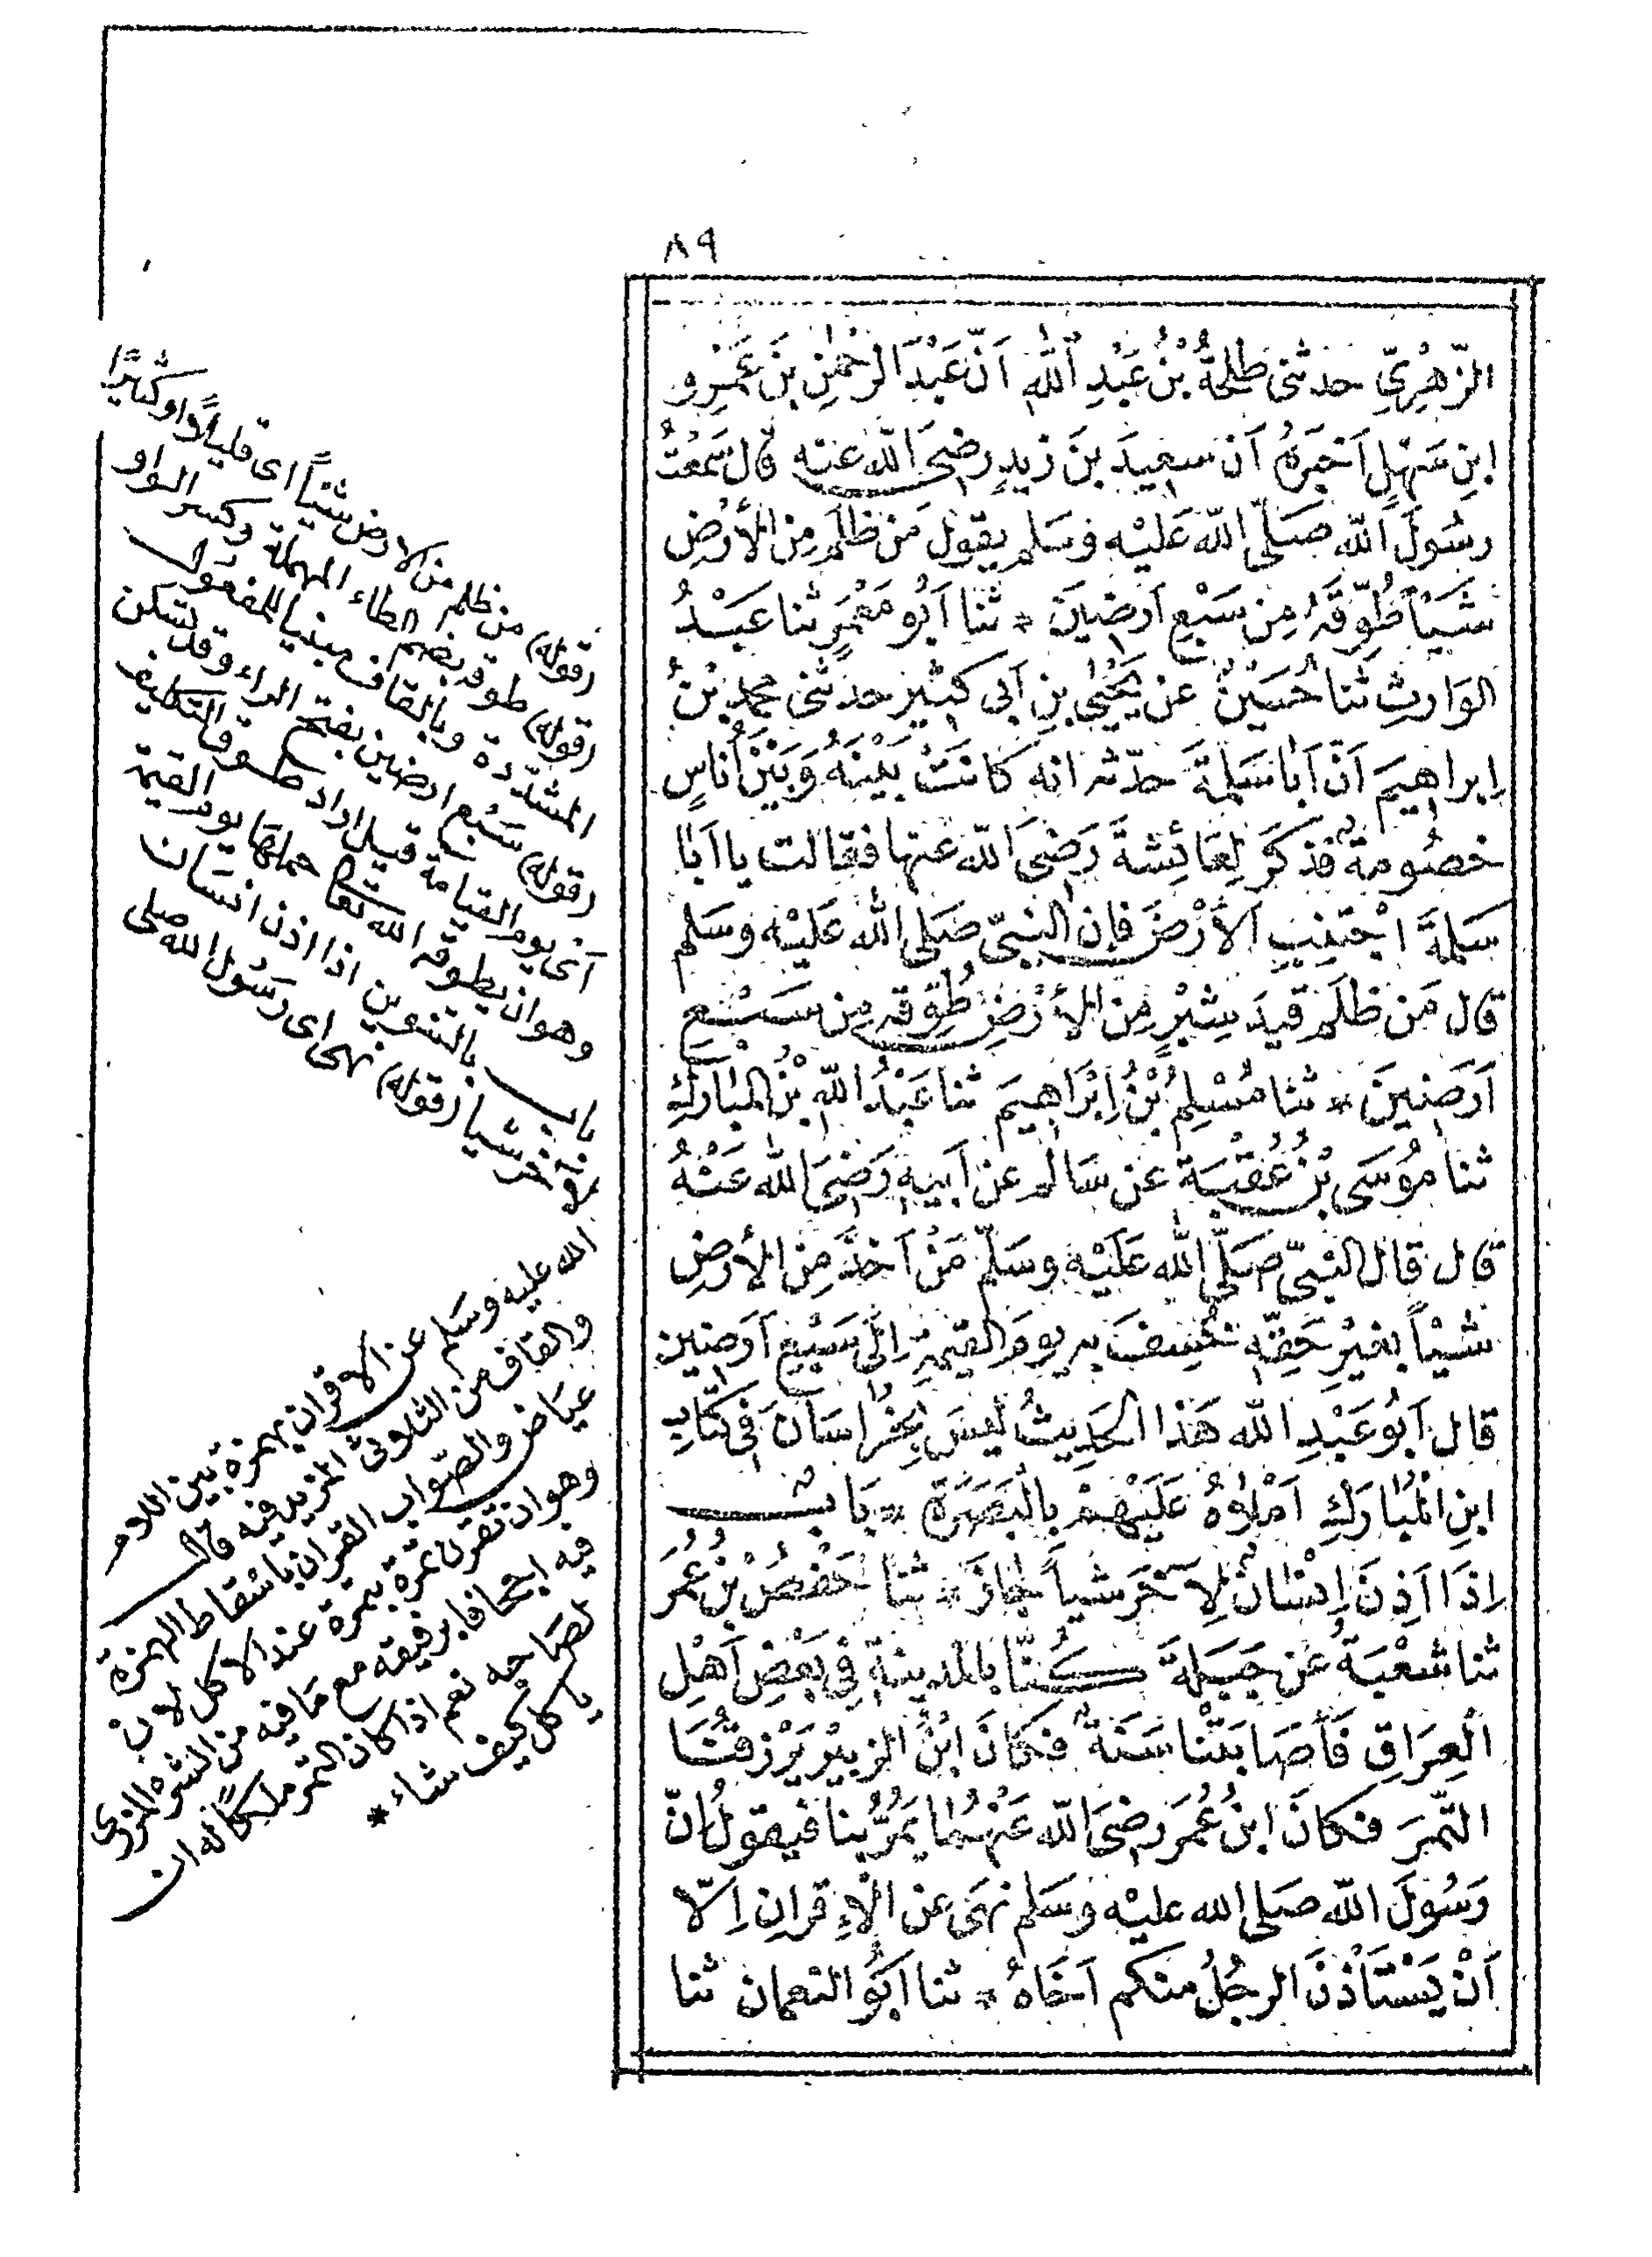 ٨٩
الزّهْرِيّ حدثنى طَلْحَةُ بْنُ عَبْدِ اللّٰهِ اَنّ عَبْدَ الرَّحْمٰنِ بْنَ عَمْرِو
ابْنِ سَهْلٍ اَخْبَرَهُ اَنّ سعِيدَ بْنَ زَيدٍ رضِىَ اللّٰه عنه قال سَمعْتُ
رسُولَ اللّٰه صَلّى اللّٰه عَلَيْه وسَلم يقولُ مَن ظلَمَ مِنَ الأرْضِ
شَيْأً طُوِّقَهُ مِن سَبْعِ اَرضِينَ * ثنا اَبُو مَعْمَرٍ ثنا عَبْدُ
الوَارِثِ ثنا حُسَيْنٌ عَن يَحْيٰى بنِ اَبى كَثِيرٍ حدثنى محمد بْنُ
اِبراهِيمَ اَنّ اَبا سَلَمَةَ حدّثه انه كانَتْ بَيْنَهُ وَبَيْنَ اُناسٍ
خصُومةٌ فذكَرَ لِعَائِشةَ رَضِىَ اللّٰه عنها فقالت يا اَبَا
سَلَمةَ اجْتَنِبِ الاَرْضَ فإن النبىّ صَلى اللّٰه عَلَيْه وسَلم
قال مَن ظلَمَ قِيدَ شِبْرٍ مِنَ الأرْضِ طُوِّقه مِن سَبْعِ
اَرَضِينَ * ثنا مُسْلِمُ بْنُ اِبْرَاهِيمَ ثنا عَبْدُ اللّٰه بْنُ المُبَارَكِ
ثنا مُوسَى بْنُ عُقْبَة عَن سَالم عن اَبيهِ رَضِىَ اللّٰه عَنْهُ
قال قال النبىّ صَلّى اللّٰه عَلَيْه وسَلّم مَنْ اَخَذَ مِنَ الأرضِ
شَيْأً بغيْرِ حَقِّهِ خُسِفَ به يومَ القيٰمةِ اِلَى سَبْعِ اَرَضِينَ
قال اَبُو عَبْدِ اللّٰه هَذا الحَدِيثُ لَيسَ بِخُراسَانَ فى كِتَابِ
ابنِ المُبَارَكِ اَمْلَاهُ عَلَيْهِمْ بِالْبَصْرَةِ * بَابٌ
اِذَا اَذِنَ اِنْسَانٌ لِآخَرَ شيأً جَازَ * ثنا حَفْصُ بْنُ عُمَرَ
ثنا شعْبَةُ عَن جَبَلةَ كُنّا بالمدينةِ فِى بَعْضِ اَهْلِ
الْعِرَاقِ فَأصَابَتْنا سَنَةٌ فكانَ ابْنُ الزبيْرِ يَرْزقُنَا
التّمْرَ فكانَ ابنُ عُمَرَ رضِىَ اللّٰه عَنْهُما يَمُرُّ بِنا فَيقولُ اِنّ
رَسُولَ اللّٰه صَلى اللّٰه عليْه وسَلم نهَى عن الْاِقْرانِ اِلّا
اَنْ يَسْتَأْذِنَ الرجُلُ منكم اَخَاهُ * ثنا اَبُو النعمان ثنا
(قوله) من ظلم من الارض شيئاً اى قليلاً او كثيرًا
(قوله) طوقه بضم الطاء المهملة وكسر الواو
المشدّدة وبالقاف مبنيا للمفعول
(قوله) سَبْع ارضين بفتح الراء وقد تسكن
اَى يوم القيامة قيل اراد طوق التكليف
وهو ان يطوقه الله تعالى حملها يوم القيٰمة
باب بالتنوين اذا اذن انسان
لآخر شيا (قوله) نهى اى رسُول الله صلى
الله عليه وسلم عن الاقران بهمزة بين اللام
والقاف من الثلاثى المزيد فيه قال
عياض والصّواب القران باسقاط الهمزة
وهو ان تقرن تمرة بتمرة عند الاكل لان
فيه اجحافا برفيقه مع مَا فيه من الشره المزرى
بصَاحبه نعم اذا كان التمر ملكًا له ان
ياكل كيف شاء *